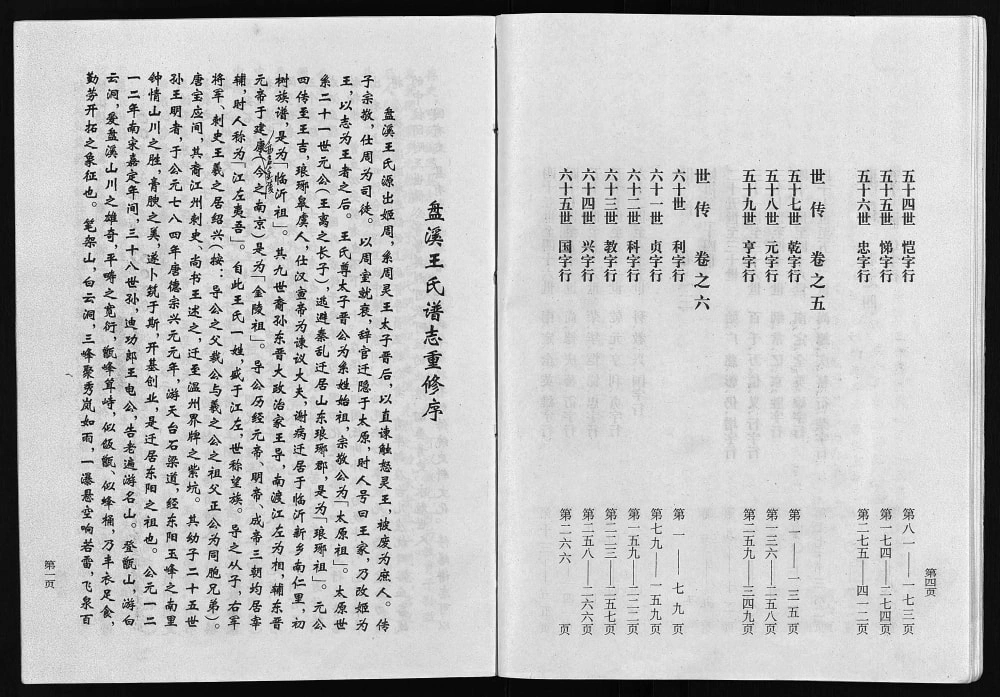 五十四世 恺字行 第八一——一七三页
五十五世 悌字行 第一七四——二七四页
五十六世 忠字行 第二七五——四一二页
世传 卷之五
五十七世 乾字行 第一——一三五页
五十八世 元字行 第一三六——二五八页
五十九世 亨字行 第二五九——三四九页
世传 卷之六
六十世 利字行 第一——七九页
六十一世 贞字行 第七九——一五九页
六十二世 科字行 第一五九——二二二页
六十三世 教字行 第二二三——二五七页
六十四世 兴字行 第二五八——二六六页
六十五世 国字行 第二六六页
第四页
盘溪王氏谱志重修序
盘溪王氏源出姬周，系周灵王太子晋后，以直谏触怒灵王，被废为庶人。传
子宗敬，仕周为司徒。以周室就衰，辞官迁隐于太原，时人号曰王家，乃改姬为
王，以志为王者之后。王氏尊太子晋公为系姓始祖，宗敬公为「太原祖」。太原世
系二十一世元公(王离之长子)，逃避秦乱迁居山东琅琊郡，是为「琅琊祖」。元公
四传至王吉，琅琊皋虞人，仕汉宣帝为谏议大夫，谢病迁居于临沂新乡南仁里，初
树族谱，是为「临沂祖」。其九世裔孙东晋大政治家王导，南渡江左为相，辅东晋
元帝于建康(今之南京)是为「金陵祖」。导公历经元帝、明帝、成帝三朝均居宰
辅，时人称为「江左夷吾」。自此王氏一姓，盛于江左，世称望族。导之从子，右军
将军、刺史王羲之居绍兴(按：导公之父裁公与羲之公之祖父正公为同胞兄弟)。
唐宝应间，其裔江州刺史、尚书王述之，迁至温州界牌之紫坑。其幼子二十五世
孙王明者，于公元七八四年唐德宗兴元元年，游天台石梁道，经东阳玉峰之南里
钟情山川之胜，青腴之美，遂卜筑于斯，开基创业，是迁居东阳之祖也。公元一二
一二年南宋嘉定年间，三十八世孙，迪功郎王电公，告老遍游名山。登甑山，游白
云洞，爱盘溪山川之雄奇，平畴之宽衍，甑峰耸峙，似饭甑、似蜂桶，乃丰衣足食，
勤劳开拓之象征也。笔架山，白云洞，三峰聚秀岚如雨，一瀑悬空响若雷，飞泉百
第一页